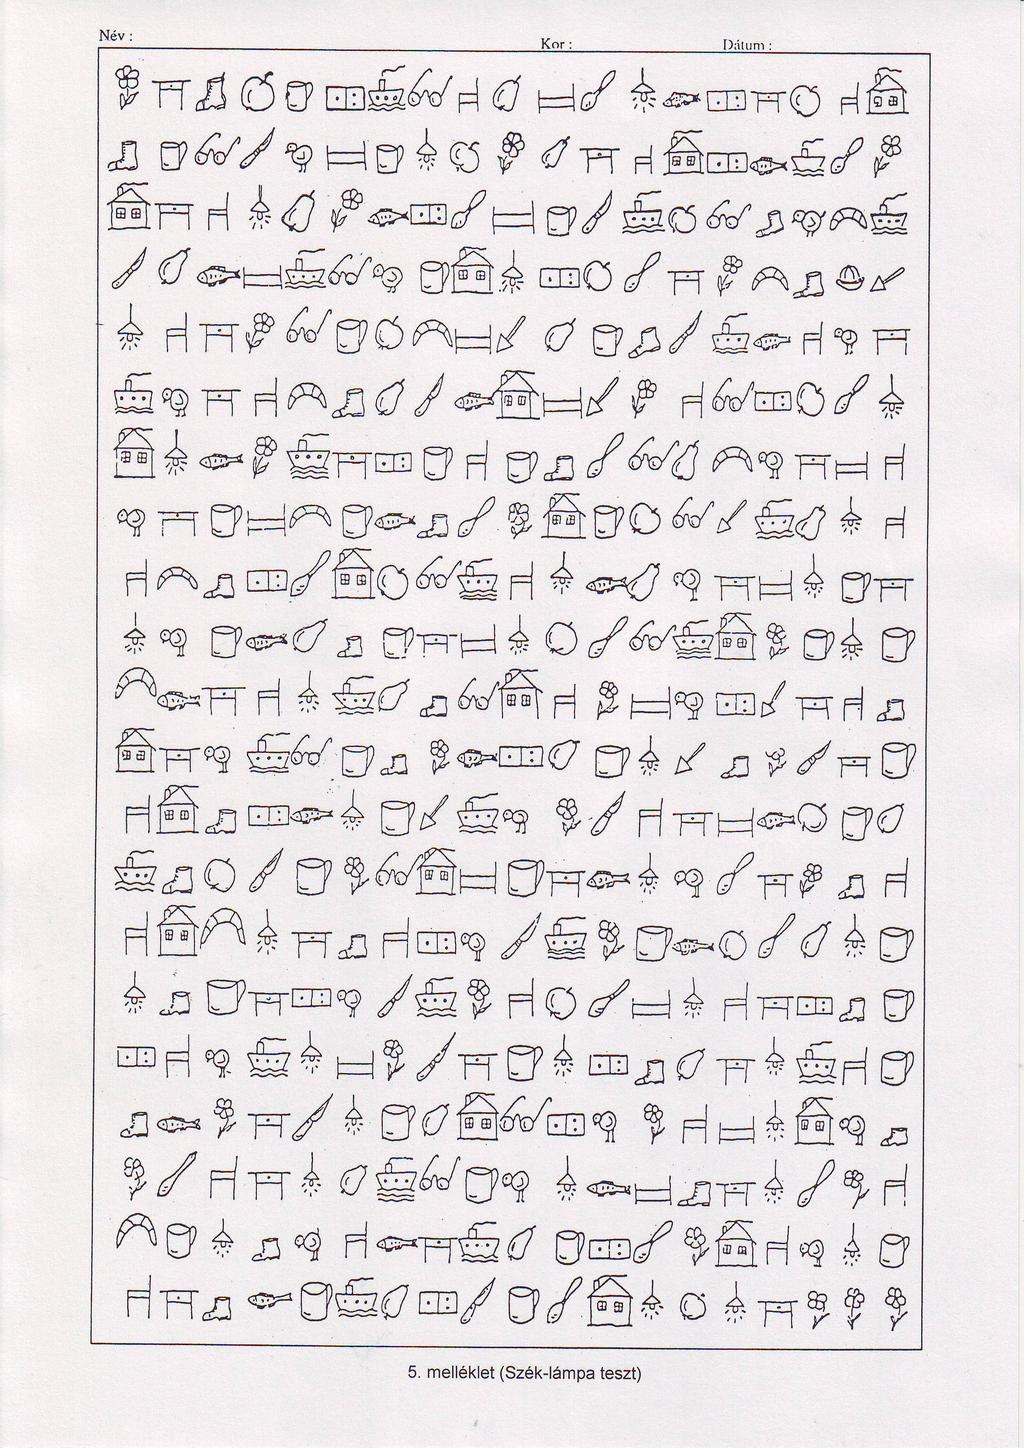 Név :
Kor :
Dátum :
5. melléklet (Szék-lámpa teszt)